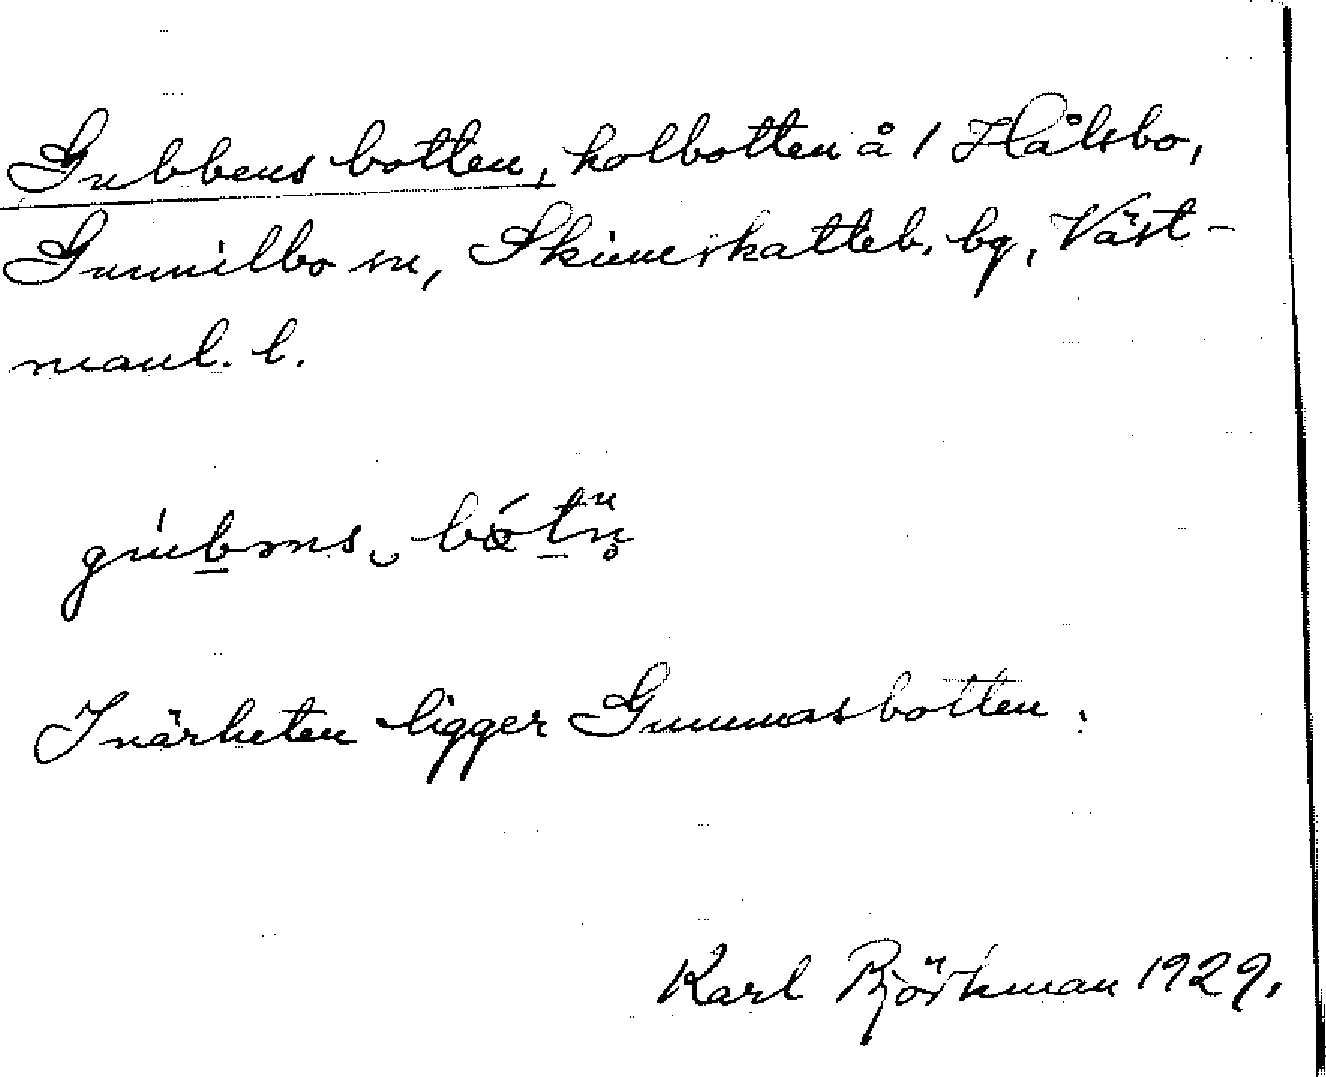 Gubbens botten, kolbotten å / Hålsbo,
Gunnilbo sn, Skinnskatteb. bg, Väst-
manl. l.
I närheten ligger Gummasbotten.
Karl Björkman 1929.